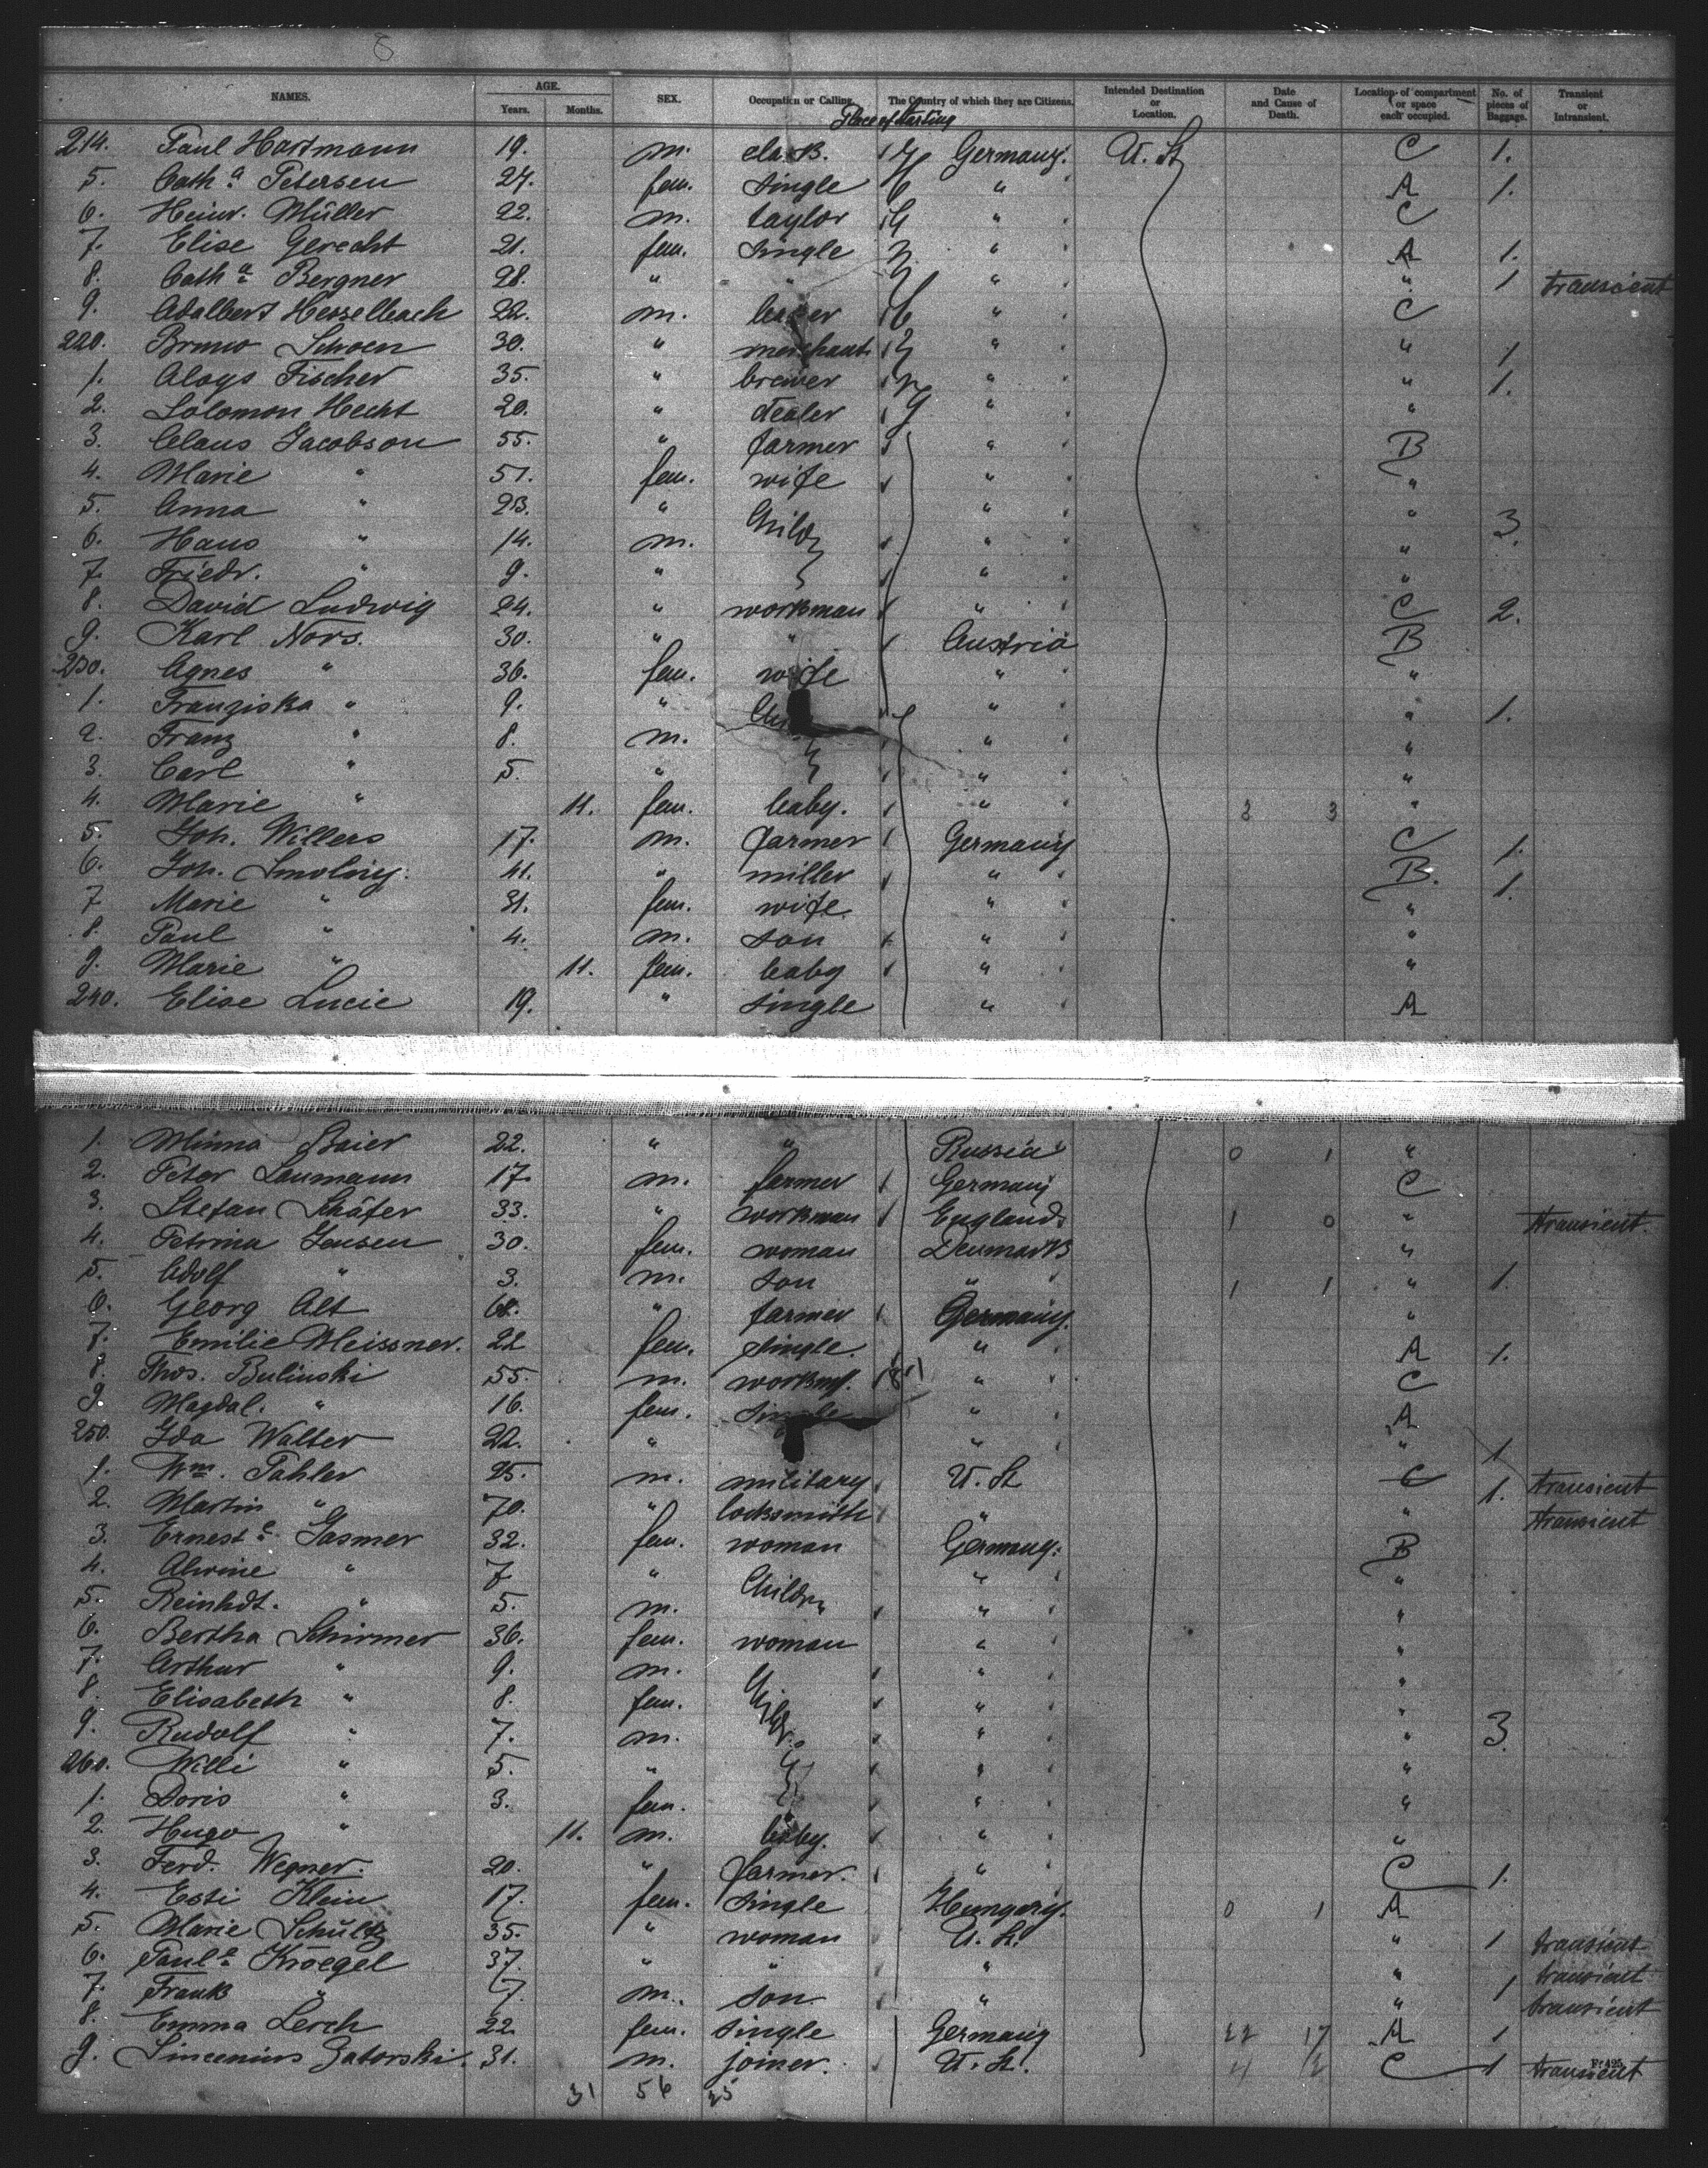 8
NAMES. AGE. Years. Months. SEX. Occupation or Calling. The Country of which they are Citizens. Intended Destination or Location. Date and Cause of Death. Location of compartment or space each occupied. No. of pieces of Baggage. Transient or Intransient.
Place of starting
214. Paul Hartmann 19. m. Germany. U. St C 1.
5. Cath.a Petersen 27. fem. single " A 1.
6. Heinr. Müller 22. m. taylor " C
7. Elise Gerecht 21. fem. single " A 1.
8. Cath.a Bergner 28. " " " " 1 transient
9. Adalbert Hesselbach 22. m. " C
220. Bruno Schoen 30. " merchant " " 1
1. Aloys Fischer 35. " brewer " " 1.
2. Solomon Hecht 20. " dealer " "
3. Claus Jacobson 55. " farmer " B
4. Marie " 51. fem. wife " "
5. Anna " 23. " Child " " 3.
6. Hans " 14. m. " "
7. Friedr. " 9. " " "
8. David Ludwig 24. " workman " C 2.
9. Karl Nors. 30. " " Austria B
230. Agnes " 36. fem. wife " "
1. Franziska " 9. " " " 1.
2. Franz " 8. m. " "
3. Carl " 5. " " "
4. Marie " 11. fem. baby. " 3 "
5. Joh. Willers 17. m. farmer Germany C 1.
6. Joh. Smoliny. 41. " miller " B. 1.
7 Marie " 31. fem. wife " "
8. Paul " 4. m. son " "
9. Marie " 11. fem. baby " "
240. Elise Lucie 19. " single " A
1. Minna Baier 22. " " Russia 0 1 "
2. Peter Laumann 17. m. farmer Germany C
3. Stefan Schäfer 33. " workman England 1 0 " transient
4. Petrina Jensen 30. fem. woman Denmark "
5. Adolf " 3. m. son " 1 1 " 1.
6. Georg Alt " farmer Germany. "
7. Emilie Meissner. 22 fem. single. " A 1.
8. Thos. Bulinski 55. m. workm. " C
9. Magdal. " 16. fem. single " A
250. Ida Walter 22. " " " 1
1. Wm. Pahler 25. m. military U. St C 1. transient
2. Martin " 70. " locksmith " " transient
3. Ernest.e Gasmer 32. fem. woman Germany. B
4. Alwine " 7 " Childr " "
5. Reinhdt. " 5. m. " "
6. Bertha Schirmer 36. fem. woman " "
7. Arthur " 9. m. " "
8. Elisabeth " 8. fem. Childr. " "
9. Rudolf " 7. m. " " 3.
260. Willi " 5. " " "
1. Doris " 3. fem. " "
2. Hugo " 11. m. baby. " "
3. Ferd. Wegner. 20. " farmer. " C 1.
4. Esti Klein 17. fem. single Hungary. 0 1 A
5. Marie Schultz 35. " woman U. St. " 1 transient
6. Paul.e Kroegel 37. " " " " transient
7. Frank " 7. m. son " " 1 transient
8. Emma Lerch 22. fem. single Germany 17 A 1
9. Sincenius Zatorski. 31. m. joiner. U. St. C 1 transient
31 56 25